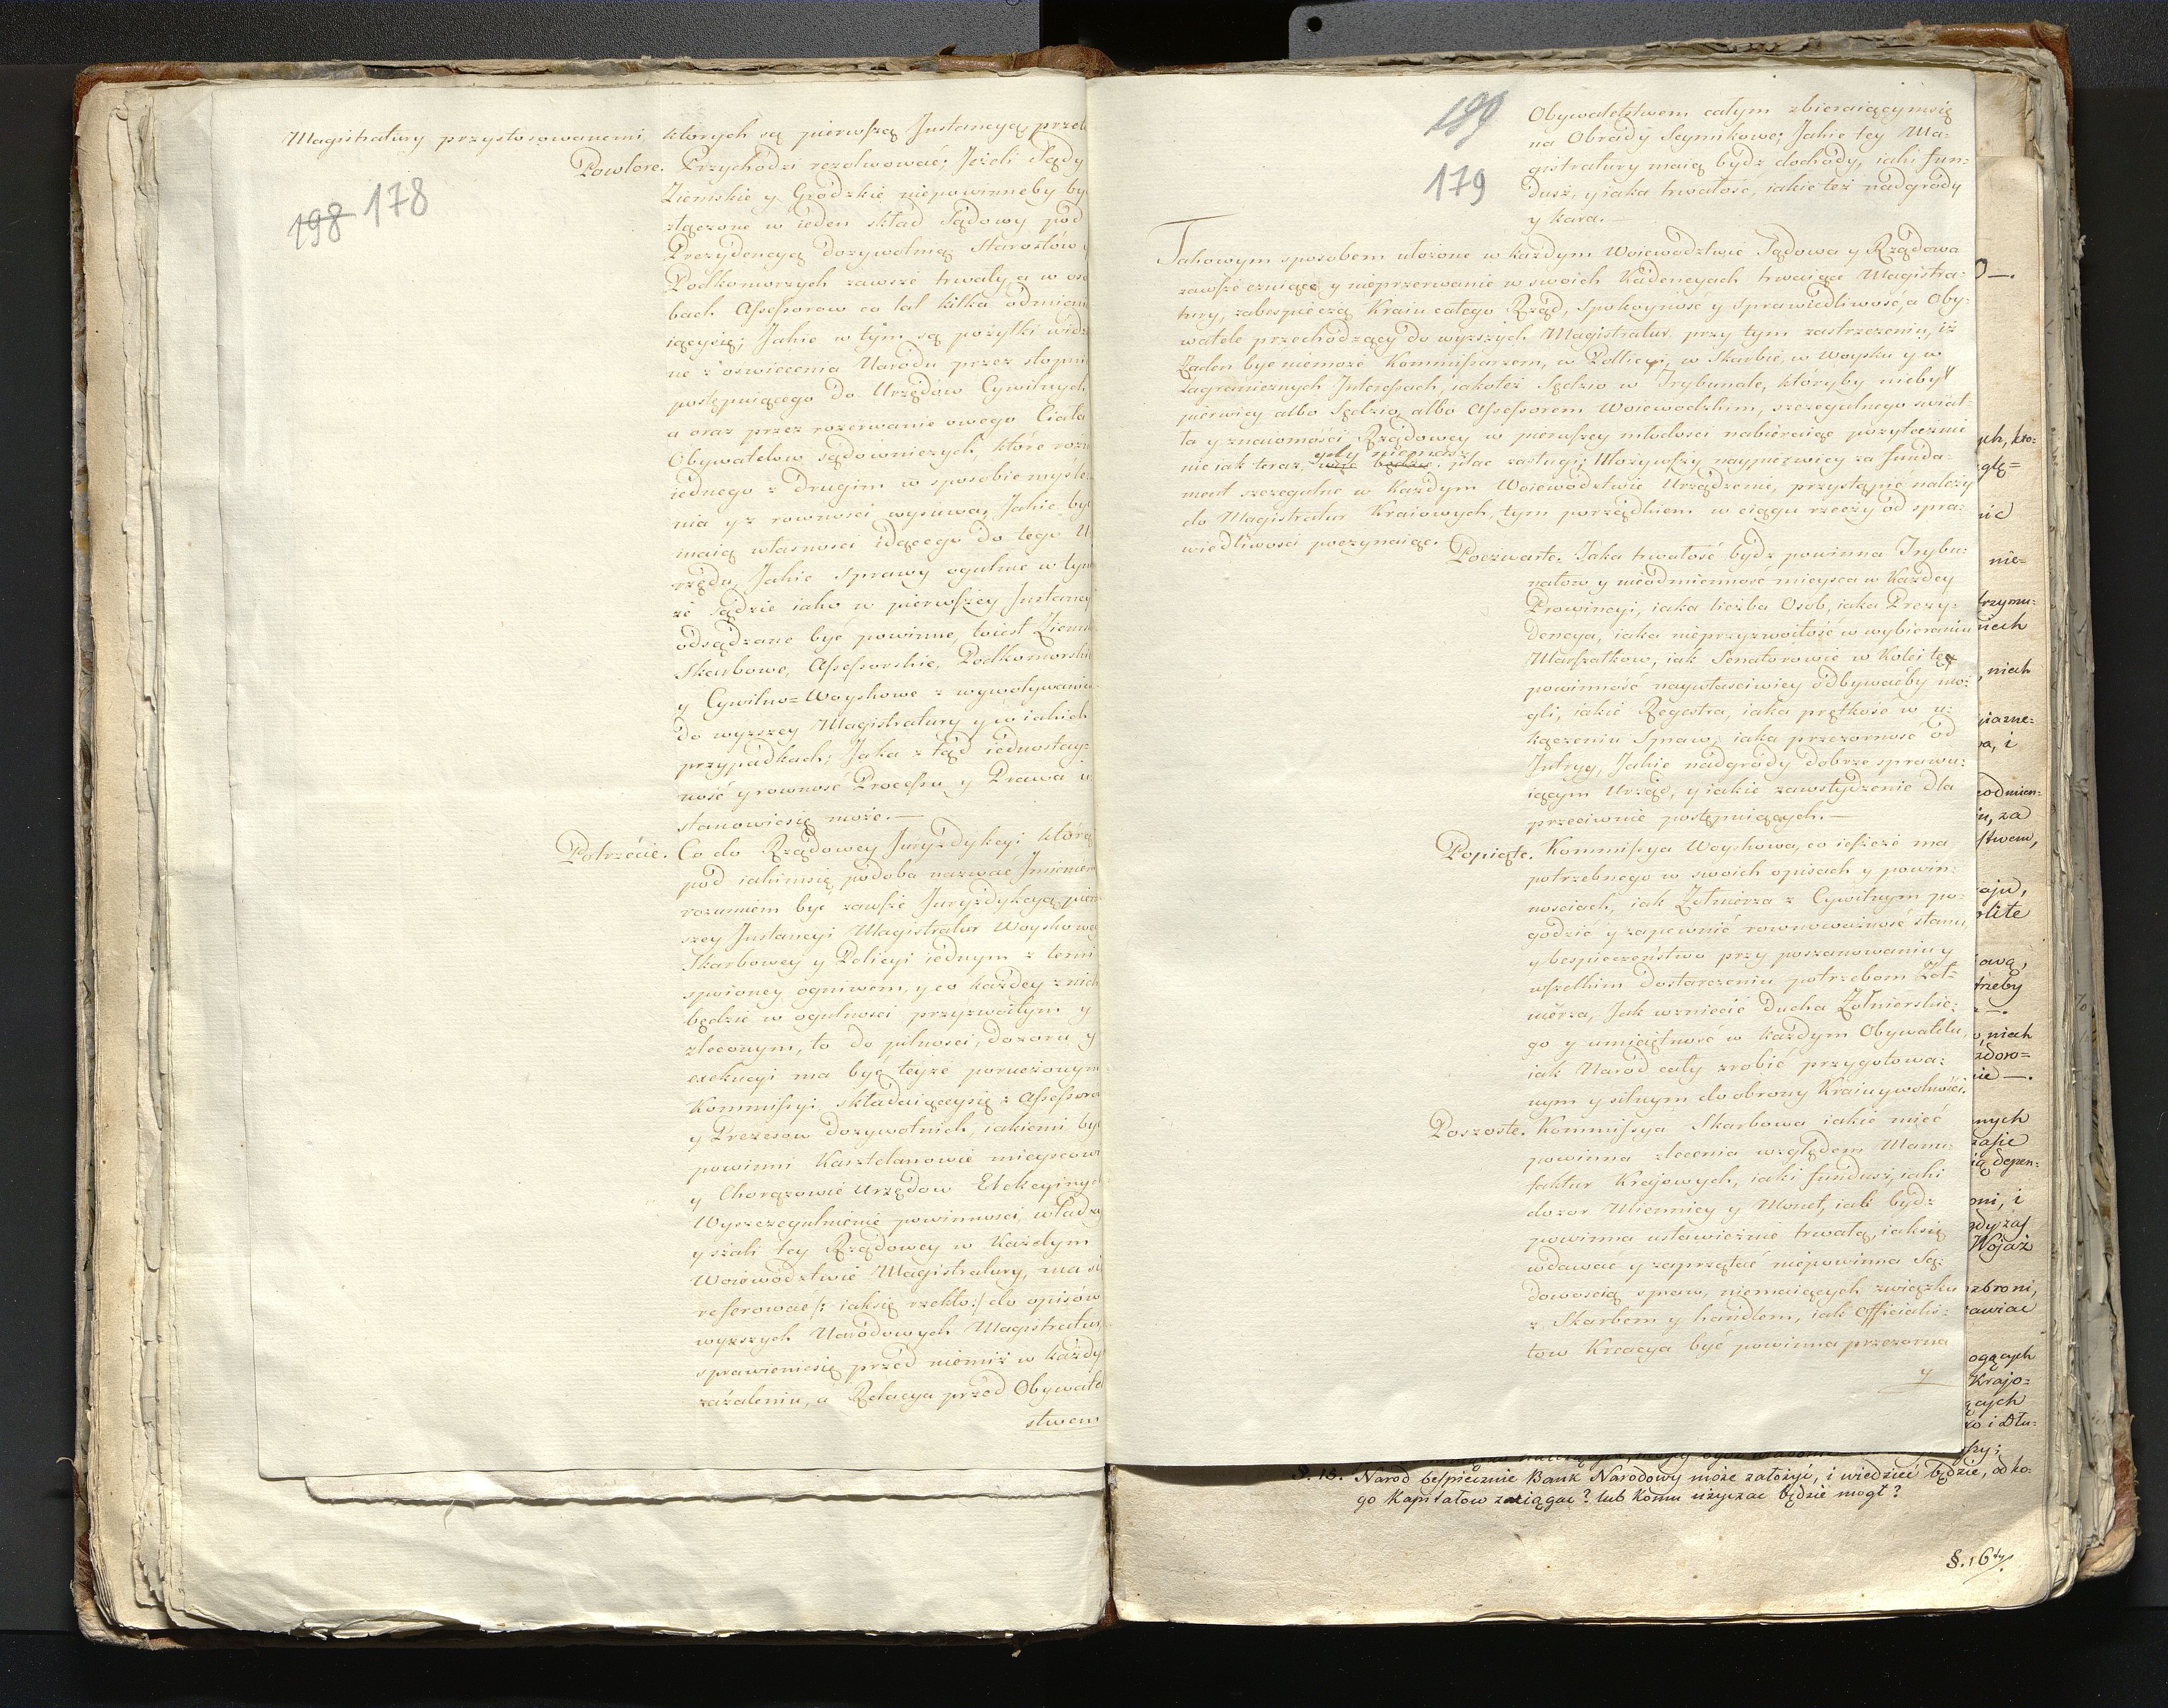 Magistratury przystosowanemi których są pierwszą Instancyą przeto
198 178
Powtore. Przychodzi rezolwować; Jeżeli Sądy
Ziemskie y Grodzkie niepowinneby być
złączone w ieden skład Sądowy pod
Prezydencyą dozywotnią Starostów y
Podkomorzych zawsze trwały a w oso
bach Assessorow co lat kilka odmienia
iącysię; Jakie w tym są pożytki widz
ne z oswiecenia Narodu przez stopnie
postępuiącego do Urzędów Cywilnych
a oraz przez rozerwanie owego Ciała
Obywatelow sądowniczych, które rozni
iednego z drugim w sposobie mysle
nia y z rowności wysuwa; Jakie być
maią własności idącego do tego U
rzędu, Jakie sprawy ogulne w tym
że Sądzie iako w pierwszey Instancyi
odsądzane być powinne, toiest Ziemskie
Skarbowe, Assessorskie, Podkomorskie
y Cywilno=Woyskowe z wywoływaniem
do wyzszey Magistratury y w iakich
przypadkach; Jaka z tąd iednostay=
ność y rowność Processu y Prawa u=
stanowicsię może.—
Potrzecie. Co do Rządowey Juryzdykcyi którą
pod iakimsię podoba nazwać Imieniem
rozumiem być zawsze Juryzdykcyą pier
szey Instancyi Magistratur Woyskowey
Skarbowey y Policyi iednym z temi
spoioney ogniwem, y co każdey z nich
będzie w ogulności przyzwoitym y
zleconym, to do pilności, dozoru y
exekucyi ma być teyże poruczonym
Kommissyi składaiącysię z Assessorow
y Prezesow dozywotnich, iakiemi być
powinni Kasztelanowie mieyscowi
y Chorązowie Urzędow Elekcyinych
Wyszczegulnienie powinności, władzy
y szali tey Rządowey w Każdym
Woiewodztwie Magistratury, ma się
referować /: iaksię rzekło :/ do opisów
wyzszych Narodowych Magistratur,
sprawieniesię przed niemiż w każdym
zażaleniu, a Relacya przed Obywatel
stwem
199
179
Obywatelstwem całym zbieraiącymsię
na Obrady Seymikowe; Jakie tey Ma=
gistratury maią bydz dochody, iaki fun=
dusz, y iaka trwałość, iakie też nadgrody
y kara.—
Takowym sposobem ułożone w każdym Woiewodztwie Sądowa y Rządowa
zawsze czuiące y nieprzerwanie w swoich Kadencyach trwaiące Magistra=
tury, zabespieczą Kraiu całego Rząd, Spokoyność y Sprawiedliwość, a Oby=
watele przechodzący do wyzszych Magistratur przy tym zastrzeżeniu, iż
Żaden byc niemoże Kommissarzem, w Pollicyi, w Skarbie, w Woysku y w
Zagranicznych Interessach, iakoteż Sędzio w Trybunale, któryby niebył
pierwiey albo Sędzią albo Assessorem Woiewodzkim, szczegulnego świat
ła y znaiomości Rządowey w pierwszey młodości nabieraiąc pozyteczni
gdy niemasz
nie iak teraz, więc będzie, płac zasługi; Ułożywszy naypierwiey za funda=
ment szczegulne w Każdym Woiewodztwie Urządzenie, przystąpić należy
do Magistratur Kraiowych, tym porządkiem w ciągu rzeczy od spra=
wiedliwości poczynaiąc.—
Poczwarte. Jaka trwałość bydz powinna Trybu=
nałow y nieodmienność mieysca w Każdey
Prowincyi, iaka liczba Osob, iaka Prezy=
dencya, iaka nieprzyzwoitość w wybieraniu
Marszałkow, iak Senatorowie w Kolei tę
powinność naywłaściwiey odbywaćby mo=
gli, iakie Regestra, iaka prętkość w u=
kączeniu Spraw; iaka przezorność od
Intryg, Jakie nadgrody dobrze sprawu=
iącym Urząd, y iakie zawstydzenie dla
przeciwnie postępuiących.—
Popiąte. Kommissya Woyskowa, co ieszcze ma
potrzebnego w swoich opisach y powin=
nościach, iak Żołnierza z Cywilnym po=
godzić y zapewnić rownoważność stanu,
y bespieczeństwo przy poszanowaniu y
wszelkim dostarczeniu potrzebom Żoł=
nierza, Jak wzniecić Ducha Żołnierskie=
go y umieiętność w każdym Obywatelu,
iak Naród cały zrobić przygotowa=
nym y silnym do obrony Kraiu y wolności.
Poszoste. Kommissya Skarbowa iakie mieć
powinna zlecenia względem Manu=
faktur Krajowych, iaki fundusz, iaki
dozor Miennicy y Monet, iak bydz
powinna ustawicznie trwałą, iaksię
wdawać y zaprzątać niepowinna Są=
dowością spraw, niemaiących związku
z Skarbem y handlem, iak Officialis=
tow Kreacya być powinna przezorna
y
§. 15. Narod bespiecznie Bank Narodowy może założyć, i wiedzieć będzie, od ko=
go Kapitałow zaciągać? lub Komu użyczać będzie mogł?
§. 16ty.